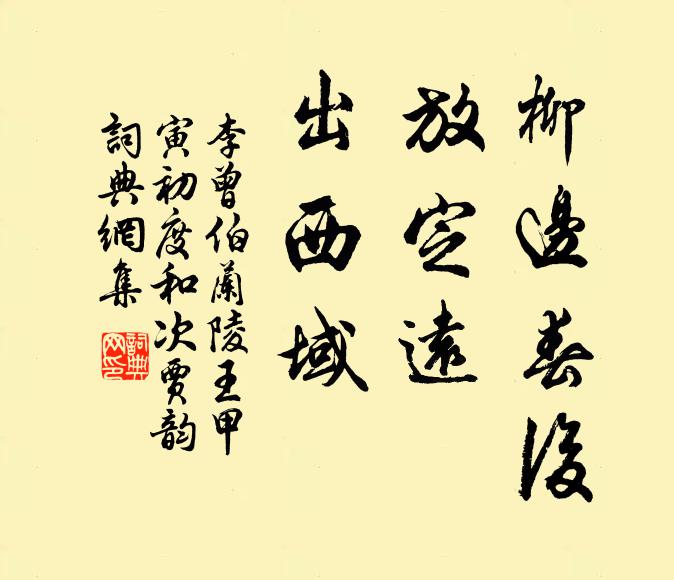 柳邊春後
放定遠
出西域
李曾伯蘭陵王甲
寅初度和次賈韵
詞典網集
詞典
网印